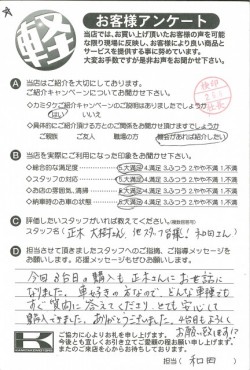 軽
お客様アンケート
当店では、お買い上げ頂いたお客様の声を可能
な限り現場に反映し、お客様により良い商品と
サービスを提供する事に努めています。
大変お手数ですが是非お声をお聞かせ下さい。
A 当店はご紹介を大切にしております。
ご紹介キャンペーンについてお聞かせ下さい。
◇カミタケご紹介キャンペーンのご説明はありましたでしょうか
はい いいえ
◇具体的にご紹介頂ける方とのご関係をお聞かせ頂けますでしょうか
ご親族 ご友人 職場の方 機会があれば紹介したい
B 当店を実際にご利用になられた印象をお聞かせ下さい。
◇総合的な満足度 5.大満足 4.満足 3.ふつう 2.やや不満 1.不満
◇スタッフの対応 5.大満足 4.満足 3.ふつう 2.やや不満 1.不満
◇お店の雰囲気、清掃 5.大満足 4.満足 3.ふつう 2.やや不満 1.不満
◇納車時のお車の状態 5.大満足 4.満足 3.ふつう 2.やや不満 1.不満
C 評価したいスタッフがいれば教えてください。(複数回答可)
スタッフ名( 正木 大樹さん 他スタッフ皆様! 和田さん )
D 担当させて頂きましたスタッフへのご指摘、ご指導メッセージを
お願いします。応援メッセージもぜひお願いします。
今回3台目の購入も正木さんにお世話に
なりました。車好きの方なので、どんな車種でも
すぐ質問に答えてくださり とても安心して
購入できました。ありがとうございました。4台目もよろしく
お願い致します!!
ご協力に心よりお礼を申し上げます。
今後とも宜しくお引き立てご愛顧の程お願い申し上げます。
またのご来店を心からお待ちしております。
担当( 和田 )